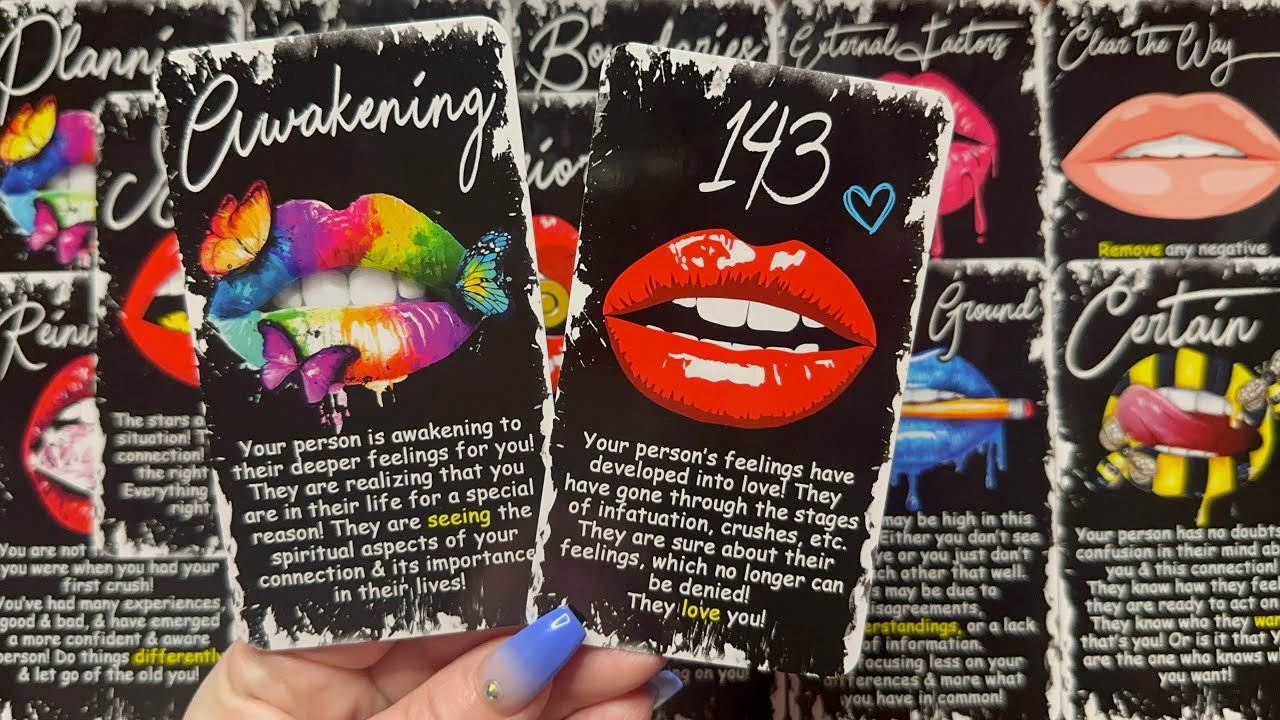 Awakening
Your person is awakening to
their deeper feelings for you!
They are realizing that you
are in their life for a special
reason! They are seeing the
spiritual aspects of your
connection & its importance
in their lives!
143
Your person's feelings have
developed into love! They
have gone through the stages
of infatuation, crushes, etc.
They are sure about their
feelings, which no longer can
be denied!
They love you!
External Factors
Clear the Way
Remove any negative
The stars
situation!
connection!
the right
Everything
right
You are not
you were when you had your
first crush!
You've had many experiences,
good & bad, & have emerged
a more confident & aware
person! Do things differently
& let go of the old you!
Ground
may be high in this
Either you don't see
or you just don't
each other that well.
may be due to
disagreements,
or a lack
of information.
focusing less on your
differences & more what
you have in common!
Certain
Your person has no doubts
confusion in their mind
you & this connection!
They know how they feel
they are ready to act on
They know who they
that's you! Or is it that
are the one who knows
you want!
on you!